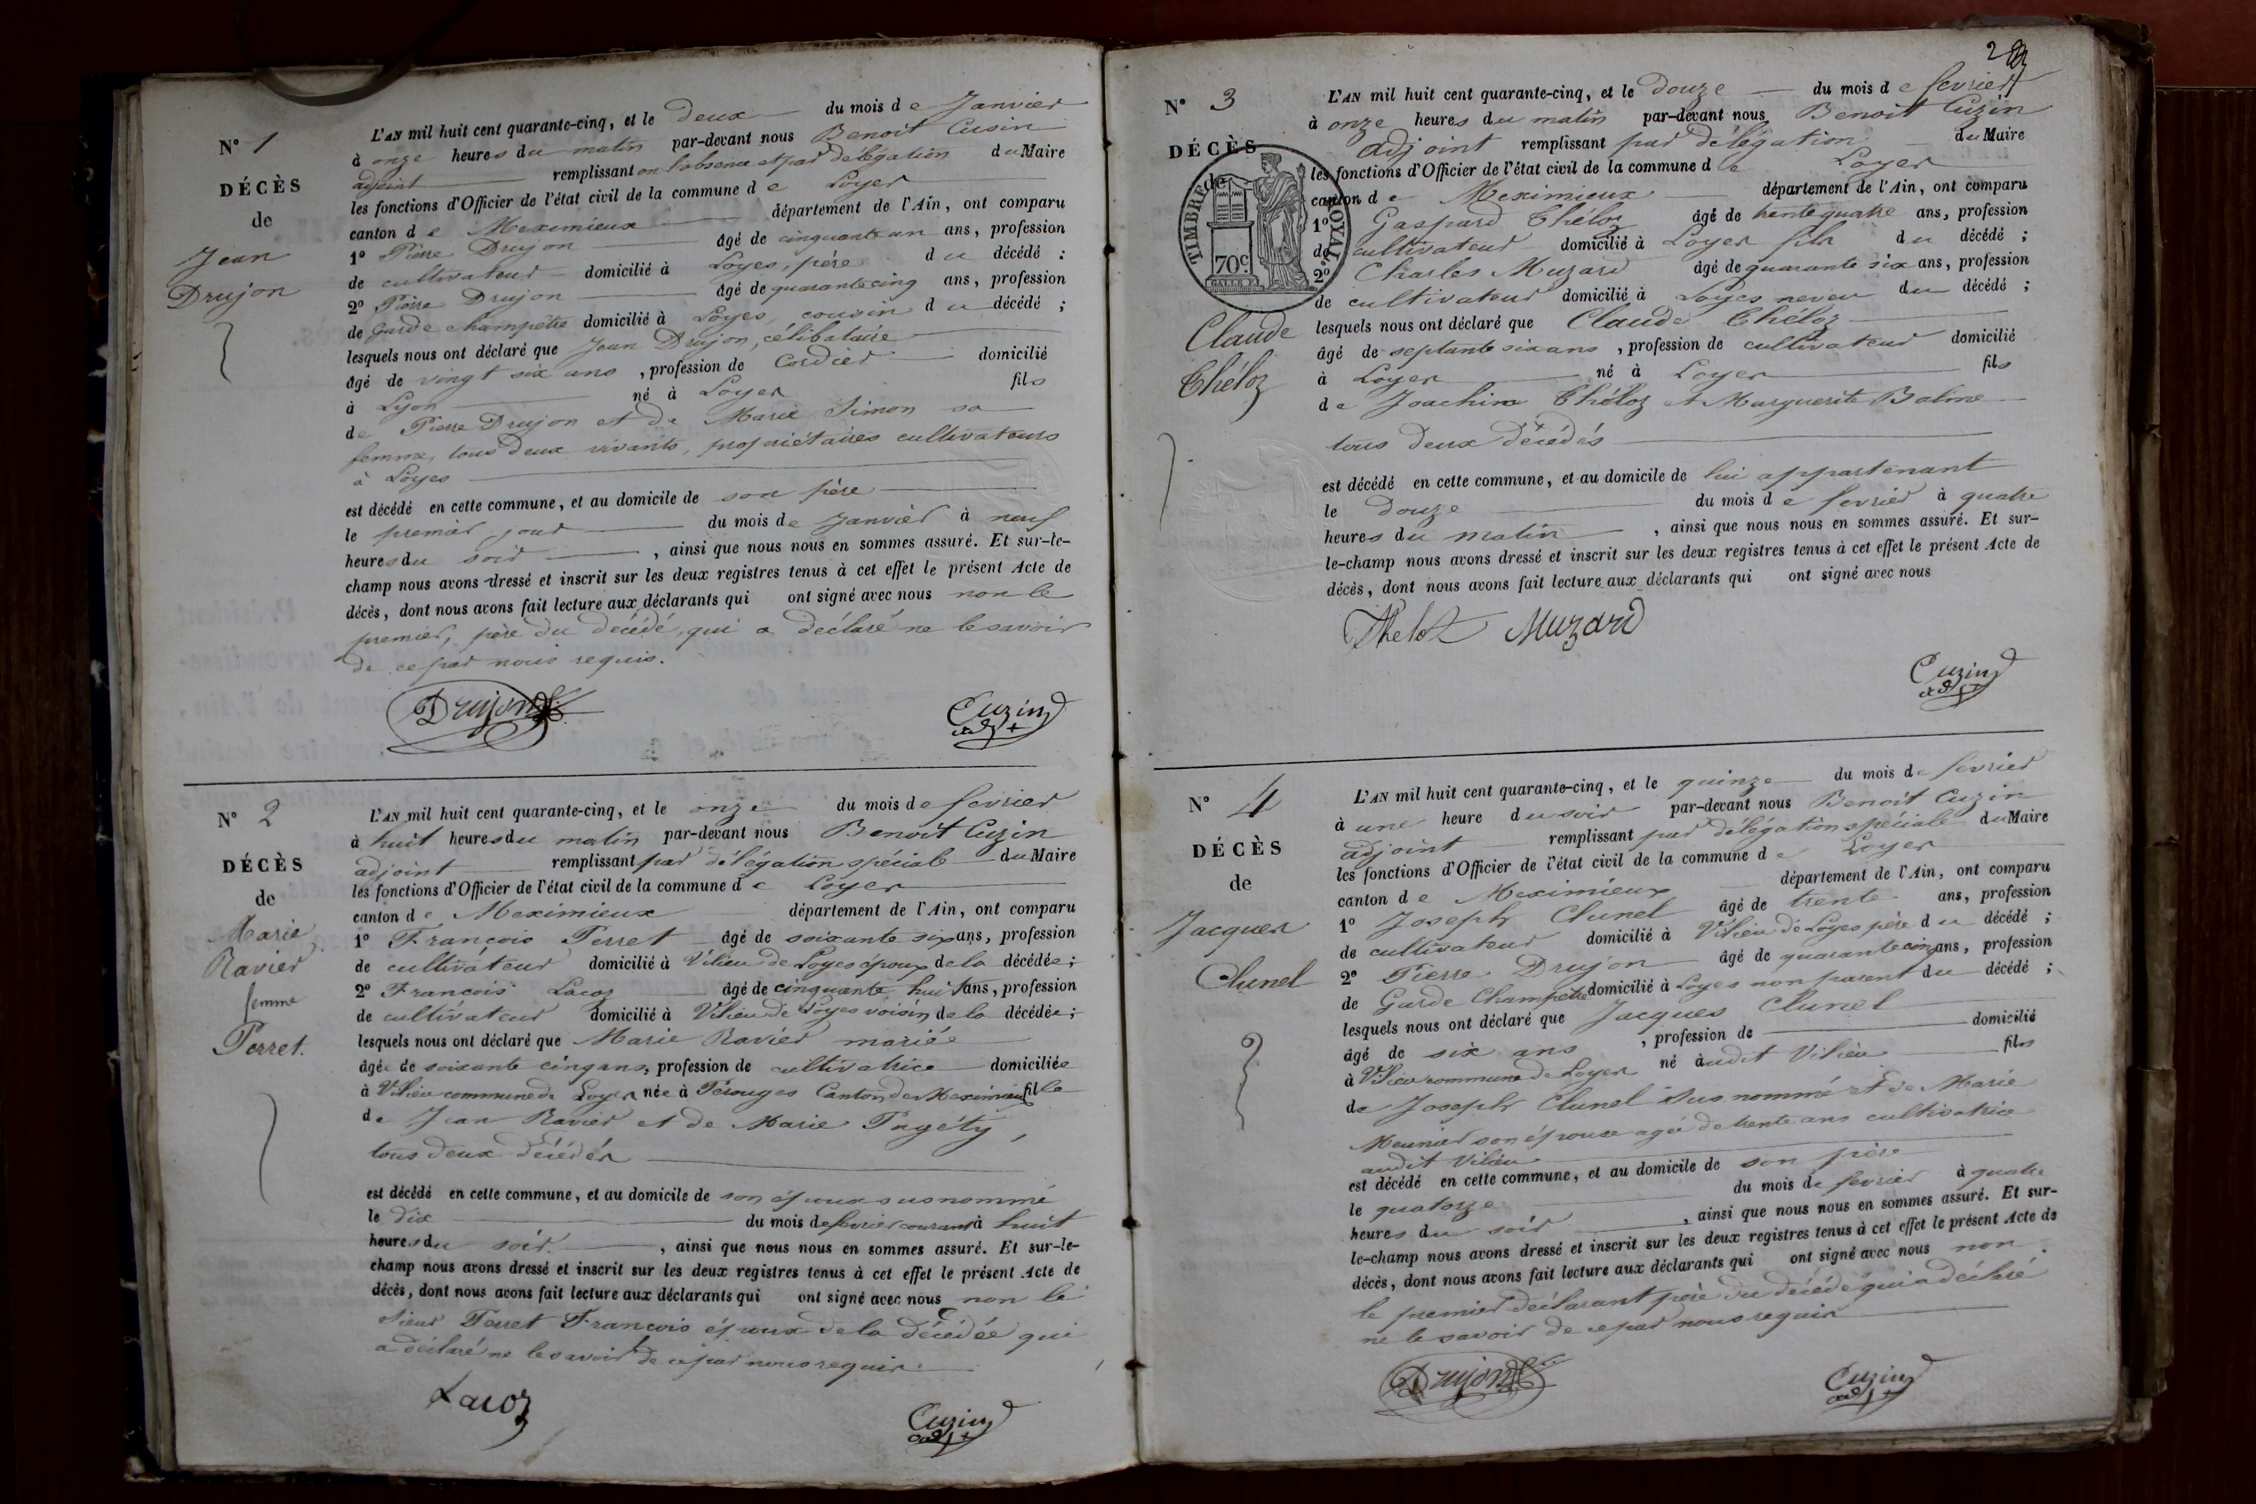 N° 1
DÉCÈS
de
Jean
Drujon
L'AN mil huit cent quarante-cinq, et le deux du mois de Janvier
à onze heures du matin par-devant nous Benoit Cusin
adjoint remplissant en l'absence et par délégation du Maire
les fonctions d'Officier de l'état civil de la commune de Loyes
canton de Meximieux département de l'Ain, ont comparu
1° Pierre Drujon âgé de cinquante un ans, profession
de cultivateur domicilié à Loyes, père du décédé :
2° Pierre Drujon âgé de quarante cinq ans, profession
de Garde champêtre domicilié à Loyes, cousin du décédé ;
lesquels nous ont déclaré que Jean Drujon, célibataire
âgé de vingt six ans, profession de Cordier domicilié
à Lyon né à Loyes fils
de Pierre Drujon et de Marie Simon sa
femme, tous deux vivants, propriétaires cultivateurs
à Loyes
est décédé en cette commune, et au domicile de son père
le premier jour du mois de Janvier à neuf
heures du soir, ainsi que nous nous en sommes assuré. Et sur-le-
champ nous avons dressé et inscrit sur les deux registres tenus à cet effet le présent Acte de
décès, dont nous avons fait lecture aux déclarants qui ont signé avec nous non le
premier, père du décédé, qui a déclaré ne le savoir
de ce par nous requis.
Drujon Cuzin
adj
N° 2
DÉCÈS
de
Marie
Ravier
femme
Perret.
L'AN mil huit cent quarante-cinq, et le onze du mois de fevrier
à huit heures du matin par-devant nous Benoit Cuzin
adjoint remplissant par délégation spéciale du Maire
les fonctions d'Officier de l'état civil de la commune de Loyes
canton de Meximieux département de l'Ain, ont comparu
1° François Perret âgé de soixante six ans, profession
de cultivateur domicilié à Vilieu de Loyes époux de la décédée ;
2° François Lacoz âgé de cinquante huit ans, profession
de cultivateur domicilié à Vilieu de Loyes voisin de la décédée ;
lesquels nous ont déclaré que Marie Ravier mariée
âgée de soixante cinq ans, profession de cultivatrice domiciliée
à Vilieu commune de Loyes née à Pérouges Canton de Meximieux fille
de Jean Ravier et de Marie Pagéty,
tous deux décédés
est décédé en cette commune, et au domicile de son époux susnommé
le dix du mois de fevrier courant à huit
heures du soir, ainsi que nous nous en sommes assuré. Et sur-le-
champ nous avons dressé et inscrit sur les deux registres tenus à cet effet le présent Acte de
décès, dont nous avons fait lecture aux déclarants qui ont signé avec nous non le
sieur Perret François époux de la décédée qui
a déclaré ne le savoir de ce par nous requis.
Lacoz
Cuzin
adj
N° 3
DÉCÈS
de
TIMBRE ROYAL
70c.
Claude
Théloz
L'AN mil huit cent quarante-cinq, et le douze du mois de fevrier
à onze heures du matin par-devant nous Benoit Cuzin
adjoint remplissant par délégation du Maire
les fonctions d'Officier de l'état civil de la commune de Loyes
canton de Meximieux département de l'Ain, ont comparu
1° Gaspard Théloz âgé de trente quatre ans, profession
de cultivateur domicilié à Loyes fils du décédé ;
2° Charles Muzard âgé de quarante six ans, profession
de cultivateur domicilié à Loyes neveu du décédé ;
lesquels nous ont déclaré que Claude Théloz
âgé de septante six ans, profession de cultivateur domicilié
à Loyes né à Loyes fils
de Joachim Théloz et Marguerite Balme
tous deux décédés
est décédé en cette commune, et au domicile de lui appartenant
le douze du mois de fevrier à quatre
heures du matin, ainsi que nous nous en sommes assuré. Et sur-
le-champ nous avons dressé et inscrit sur les deux registres tenus à cet effet le présent Acte de
décès, dont nous avons fait lecture aux déclarants qui ont signé avec nous
Theloz Muzard
Cuzin
adj
N° 4
DÉCÈS
de
Jacques
Clunel
L'AN mil huit cent quarante-cinq, et le quinze du mois de fevrier
à une heure du soir par-devant nous Benoit Cuzin
adjoint remplissant par délégation spéciale du Maire
les fonctions d'Officier de l'état civil de la commune de Loyes
canton de Meximieux département de l'Ain, ont comparu
1° Joseph Clunel âgé de trente ans, profession
de cultivateur domicilié à Vilieu de Loyes père du décédé ;
2° Pierre Drujon âgé de quarante cinq ans, profession
de Garde Champêtre domicilié à Loyes non parent du décédé ;
lesquels nous ont déclaré que Jacques Clunel
âgé de six ans, profession de domicilié
à Vilieu commune de Loyes né audit Vilieu fils
de Joseph Clunel susnommé et de Marie
Meunier son épouse agée de trente ans cultivatrice
audit Vilieu
est décédé en cette commune, et au domicile de son père
le quatorze du mois de fevrier à quatre
heures du soir, ainsi que nous nous en sommes assuré. Et sur-
le-champ nous avons dressé et inscrit sur les deux registres tenus à cet effet le présent Acte de
décès, dont nous avons fait lecture aux déclarants qui ont signé avec nous non
le premier déclarant père du décédé qui a déclaré
ne le savoir de ce par nous requis
Drujon Cuzin
adj